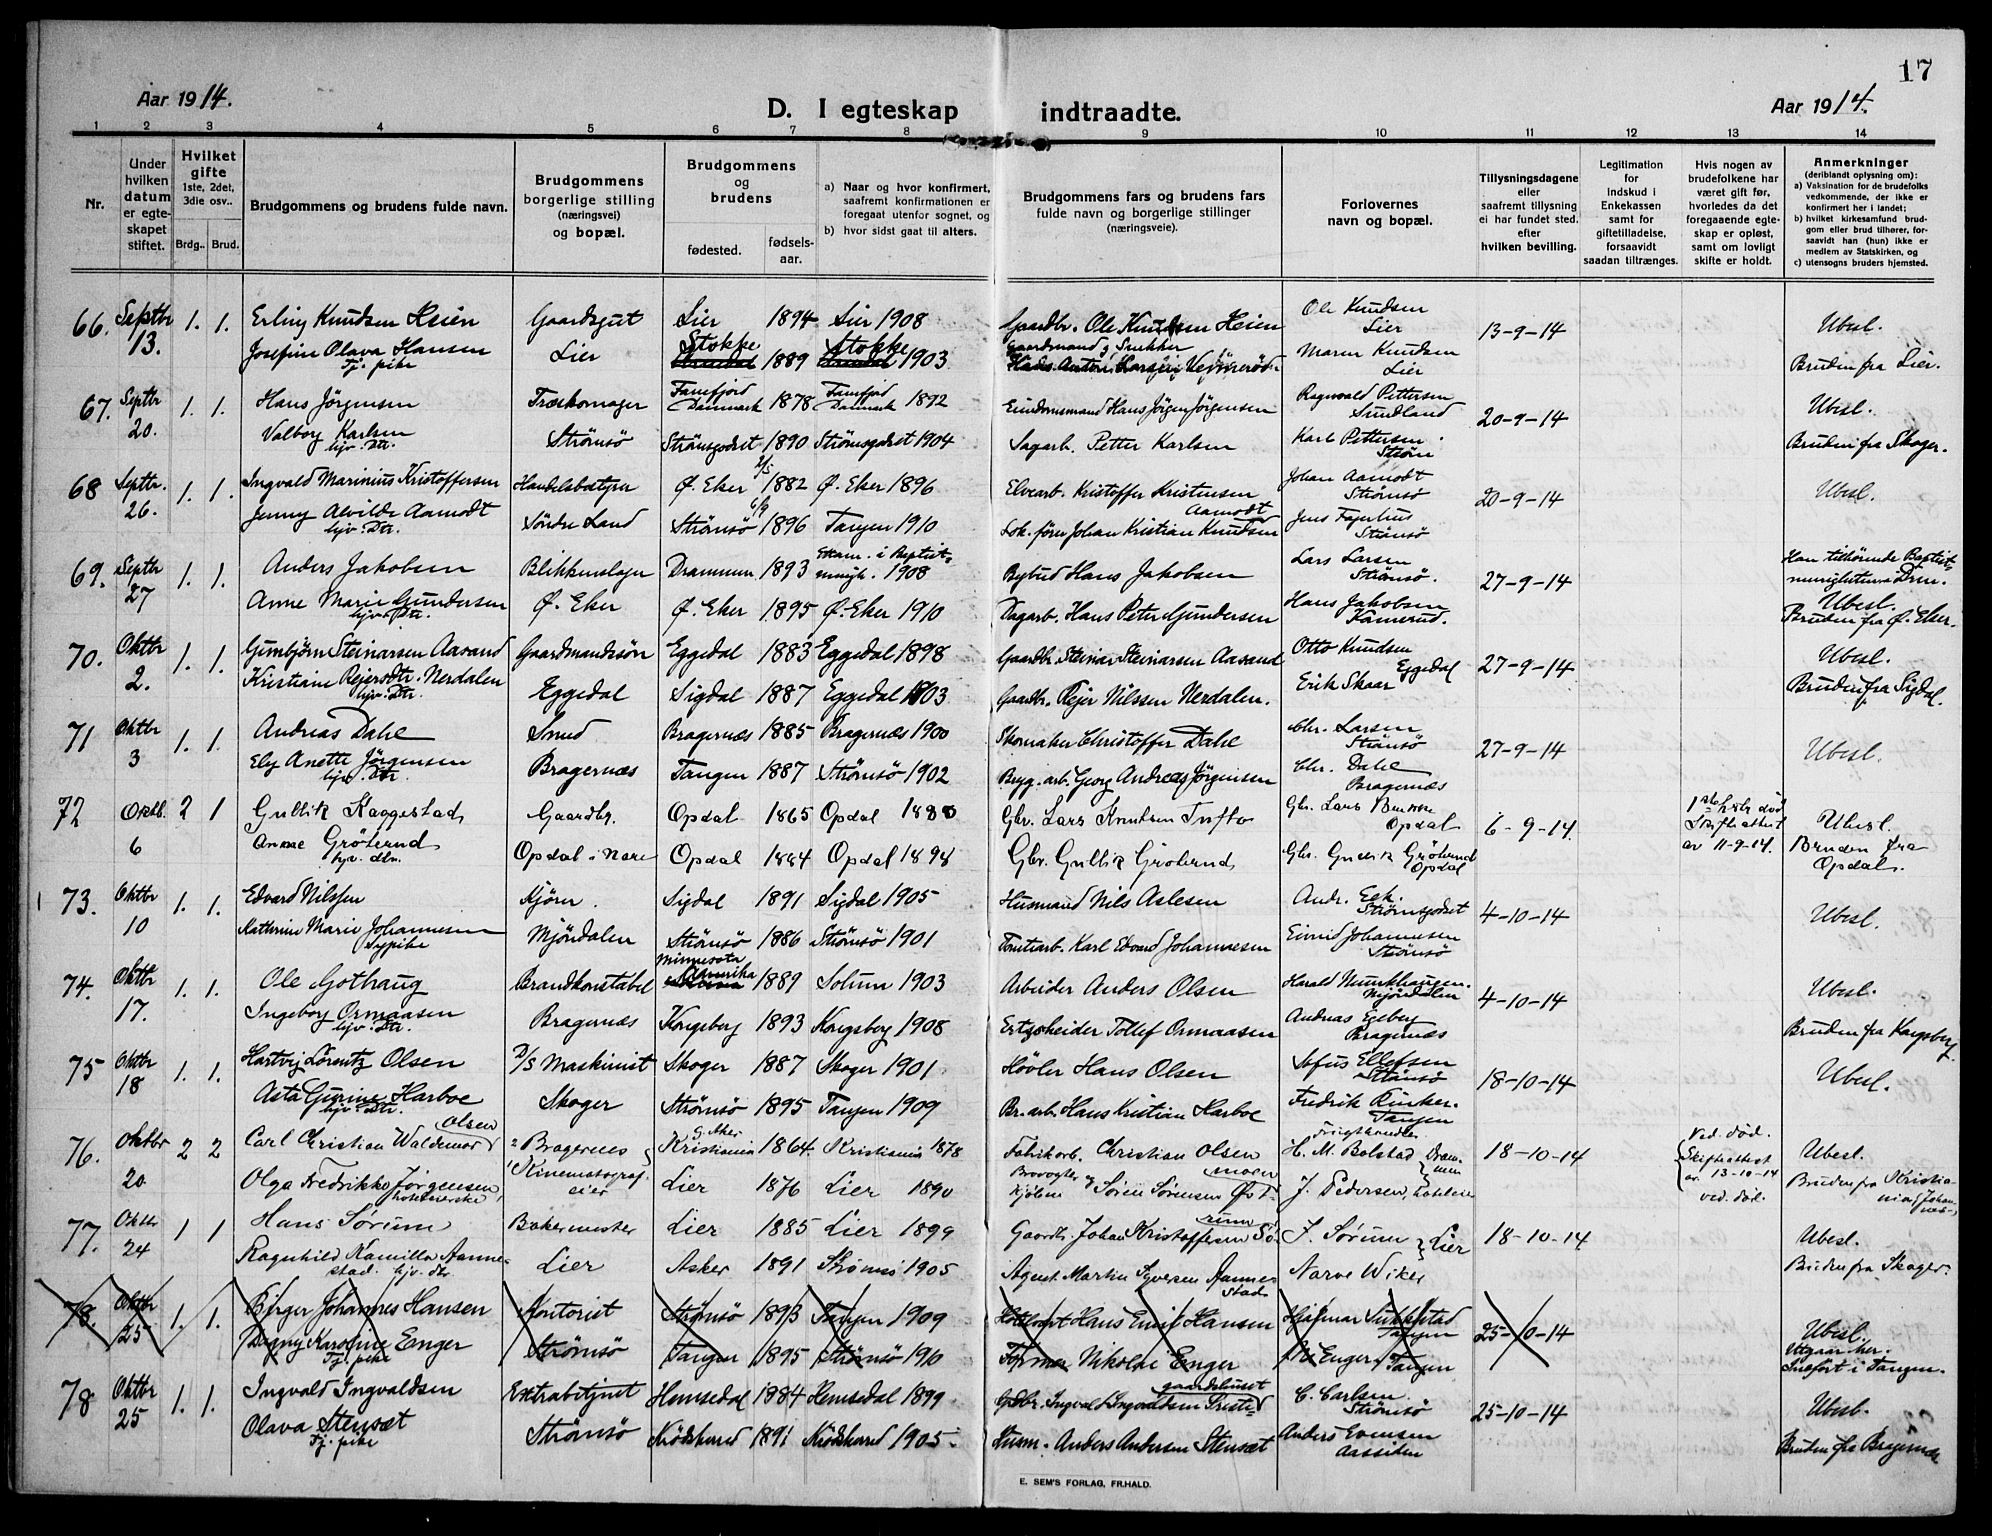 17
Aar 1914.
D. I egteskap indtraadte.
Aar 1914.
1 2 3 4 5 6 7 8 9 10 11 12 13 14
Nr.
Under hvilken datum er egteskapet stiftet.
Hvilket gifte 1ste, 2det, 3die osv..
Brdg.. Brud.
Brudgommens og brudens fulde navn.
Brudgommens borgerlige stilling (næringsvei) og bopæl.
Brudgommens og brudens
fødested. fødselsaar.
a) Naar og hvor konfirmert, saafremt konfirmationen er foregaat utenfor sognet, og
b) hvor sidst gaat til alters.
Brudgommens fars og brudens fars fulde navn og borgerlige stillinger (næringsveie).
Forlovernes navn og bopæl.
Tillysningsdagene eller saafremt tillysning ei har fundet sted. efter hvilken bevilling.
Legitimation for Indskud i Enkekassen samt for giftetilladelse, forsaavidt saadan tiltrænges.
Hvis nogen av brudefolkene har været gift før, hvorledes da det foregaaende egteskap er opløst, samt om lovligt skifte er holdt.
Anmerkninger (deriblandt oplysning om):
a) Vaksination for de brudefolks vedkommende, der ikke er konfirmert her i landet;
b) hvilket kirkesamfund brudgom eller brud tilhører, forsaavidt han (hun) ikke er medlem av Statskirken, og
c) utensogns bruders hjemsted.
66. Septbr 13. 1. 1. Erling Knudsen Heien Gaardsgut Lier 1894 Lier 1908 Gaardbr. Ole Knudsen Heien Ole Knudsen Lier 13-9-14 Ubesl.
Josefine Olava Hansen Tj. pike Lier Stokke 1889 Stokke 1903 Gaardmand g. Snekker Hans Anton Maren Knudsen Lier Bruden fra Lier.
67. Septbr 20. 1. 1. Hans Jörgensen Træskomager Danmark 1878 Danmark 1892 Eiendomsmand Hans Jörgen Jörgensen Ragnvald Pettersen Sundland 20-9-14 Ubesl.
Valborg Karlsen hjv. Dtr. Strömsö Strömsgodset 1890 Strömsgodset 1904 Sagarb. Petter Karlsen Karl Pettersen Bruden fra Skoger.
68 Septbr. 26. 1. 1. Ingvald Marinius Kristoffersen Handelsbestyrer Ø. Eker 1882 Ø. Eker 1896 Elvearb. Kristoffer Kristensen Johan Aamodt Strömsö 20-9-14 Ubesl.
Jenny Alvilde Aamodt hjv. Dtr. Söndre Land Strömsö 6/9 1896 Tangen 1910 Lok. förer Johan Kristian Knudsen Aamodt Jens Strömsö
69. Septbr 27 1. 1. Anders Jakobsen Blikkenslager Drammen 1893 Exam. i Baptist menigh. 1908 Bybud Hans Jakobsen Lars Larsen Strömsö. 27-9-14 Han tilhörende Baptistmenigheten i Drm. Ubesl.
Anne Marie Gundersen hjv. Dtr. Ø. Eker Ø. Eker 1895 Ø. Eker 1910 Dagarb. Hans Peter Gundersen Hans Jakobsen Kamerud. Bruden fra Ø. Eker.
70. Oktbr 2. 1. 1. Gunbjörn Steinarsen Aasand Gaardmandssön Eggedal 1883 Eggedal 1898 Gaardbr. Steinar Steinarsen Aasand Otto Knudsen Eggedal 27-9-14 Ubesl.
Kristiane Reiersdtr. Nerdalen hjv. Dtr. Eggedal Sigdal 1887 Eggedal 1903 Gaardbr. Reier Nilssen Nerdalen. Erik Skaar Bruden fra Sigdal.
71 Oktbr 3 1. 1. Andreas Dahl Smed Bragernæs 1885 Bragernæs 1900 Skomaker Christoffer Dahl Chr. Larsen Strömsö 27-9-14 Ubesl.
Ely Anette Jörgensen hjv. Dtr. Bragernæs Tangen 1887 Strömsö 1902 Bryg. arb. Georg Andreas Jörgensen Chr. Dahl Bragernæs
72 Oktb. 6 2 1 Gullik Kaggestad Gaardbr. Opdal 1865 Opdal 1880 Gbr. Lars Knudsen Tufto Gbr. Lars Opdal 6-9-14 Skifteattest av 11-9-14. Ubesl.
Anne Gröterud hjv. dtr. Opdal i Nore Opdal 1884 Opdal 1898 Gbr. Gullik Gröterud Gbr. Gullik Gröterud Opdal Bruden fra Opdal.
73. Oktbr 10 1. 1. Edvard Nilssen Kjörer. Sigdal 1891 Sigdal 1905 Husmand Nils Aslesen Andr. Eek. Strömsgodset 4-10-14 Ubesl.
Kathrine Marie Johannesen Sypike Mjöndalen Strömsö 1886 Strömsö 1901 Tomtearb. Karl Edvard Johannesen Eivind Johannesen Strömsö
74. Oktbr 17. 1. 1. Ole Gothaug Brandkonstabel Minnesota Amerika 1889 Solum 1903 Arbeider Anders Olsen Harald Munkhaugen. Mjöndalen 4-10-14 Ubesl.
Ingeborg Ormaasen hjv. Dtr. Bragernæs Kongsberg 1893 Kongsberg 1908 Ertzscheider Tollef Ormaasen Andreas Egeberg Bragernæs Bruden fra Kongsberg.
75 Oktbr 18 1. 1. Hartvig Lorentz Olsen D/S Maskinist Skoger 1887 Skoger 1901 Hövler Hans Olsen Sofus Ellefsen Strömsö 18-10-14 Ubesl.
Asta Gurine Harboe hjv. Dtr. Skoger Strömsö 1895 Tangen 1909 Br. arb. Hans Kristian Harboe Fredrik Rinker. Tangen
76. Oktbr 20 2 2 Carl Christian Waldemar Olsen Bragernes G. Aker Kristiania 1864 Kristiania 1878 Fabrikarb. Christian Olsen Frugthandler H. M. Bolstad Drammen 18-10-14 Ved död. Skifteattest av 13-10-14 Ubesl.
Olga Fredrikke Jörgensen, hotelværtske Kinematografeier Lier 1876 Lier 1890 Brovogter og Kjöbm Sören Sörensen Østmoen J. Pedersen, ved död. Bruden fra Kristiania, Johannes
77. Oktbr 24 1 1 Hans Sörum Bakermester Lier 1885 Lier 1899 Gaardb. Johan Kristoffersen Sörum J. Sörum Lier 18-10-14 Ubesl.
Ragnhild Kamilla Aannestad. hjv. dtr Lier Asker 1891 Strömsö 1905 Agent Martin Syversen Aannestad Narve Wiker Bruden fra Skoger.
78. Oktbr 25 1. 1. Birger Johannes Hansen Kontorist Strömsö 1893 Tangen 1909 Hans Emil Hansen Hjalmar Tangen 25-10-14 Ubesl.
Dagny Karoline Enger Tj. pike Strömsö Tangen 1895 Strömsö 1910 Former Nikolai Enger Enger, Tangen Utgaar her. Indfört i Tangen.
78 Oktbr 25 1. 1. Ingvald Ingvaldsen Extrabetjent Hemsedal 1884 Hemsedal 1899 Gdbr. Ingvald Ingvaldsen C. Carlsen. Strömsö 25-10-14 Ubesl.
Olava Stensæt Tj. pike Strömsö Krödsherred 1891 Krödsherred 1905. Husm. Anders Andersen Stensæt Anders Evensen Aassiden Bruden fra Bragernæs
E. SEM'S FORLAG, FR.HALD.